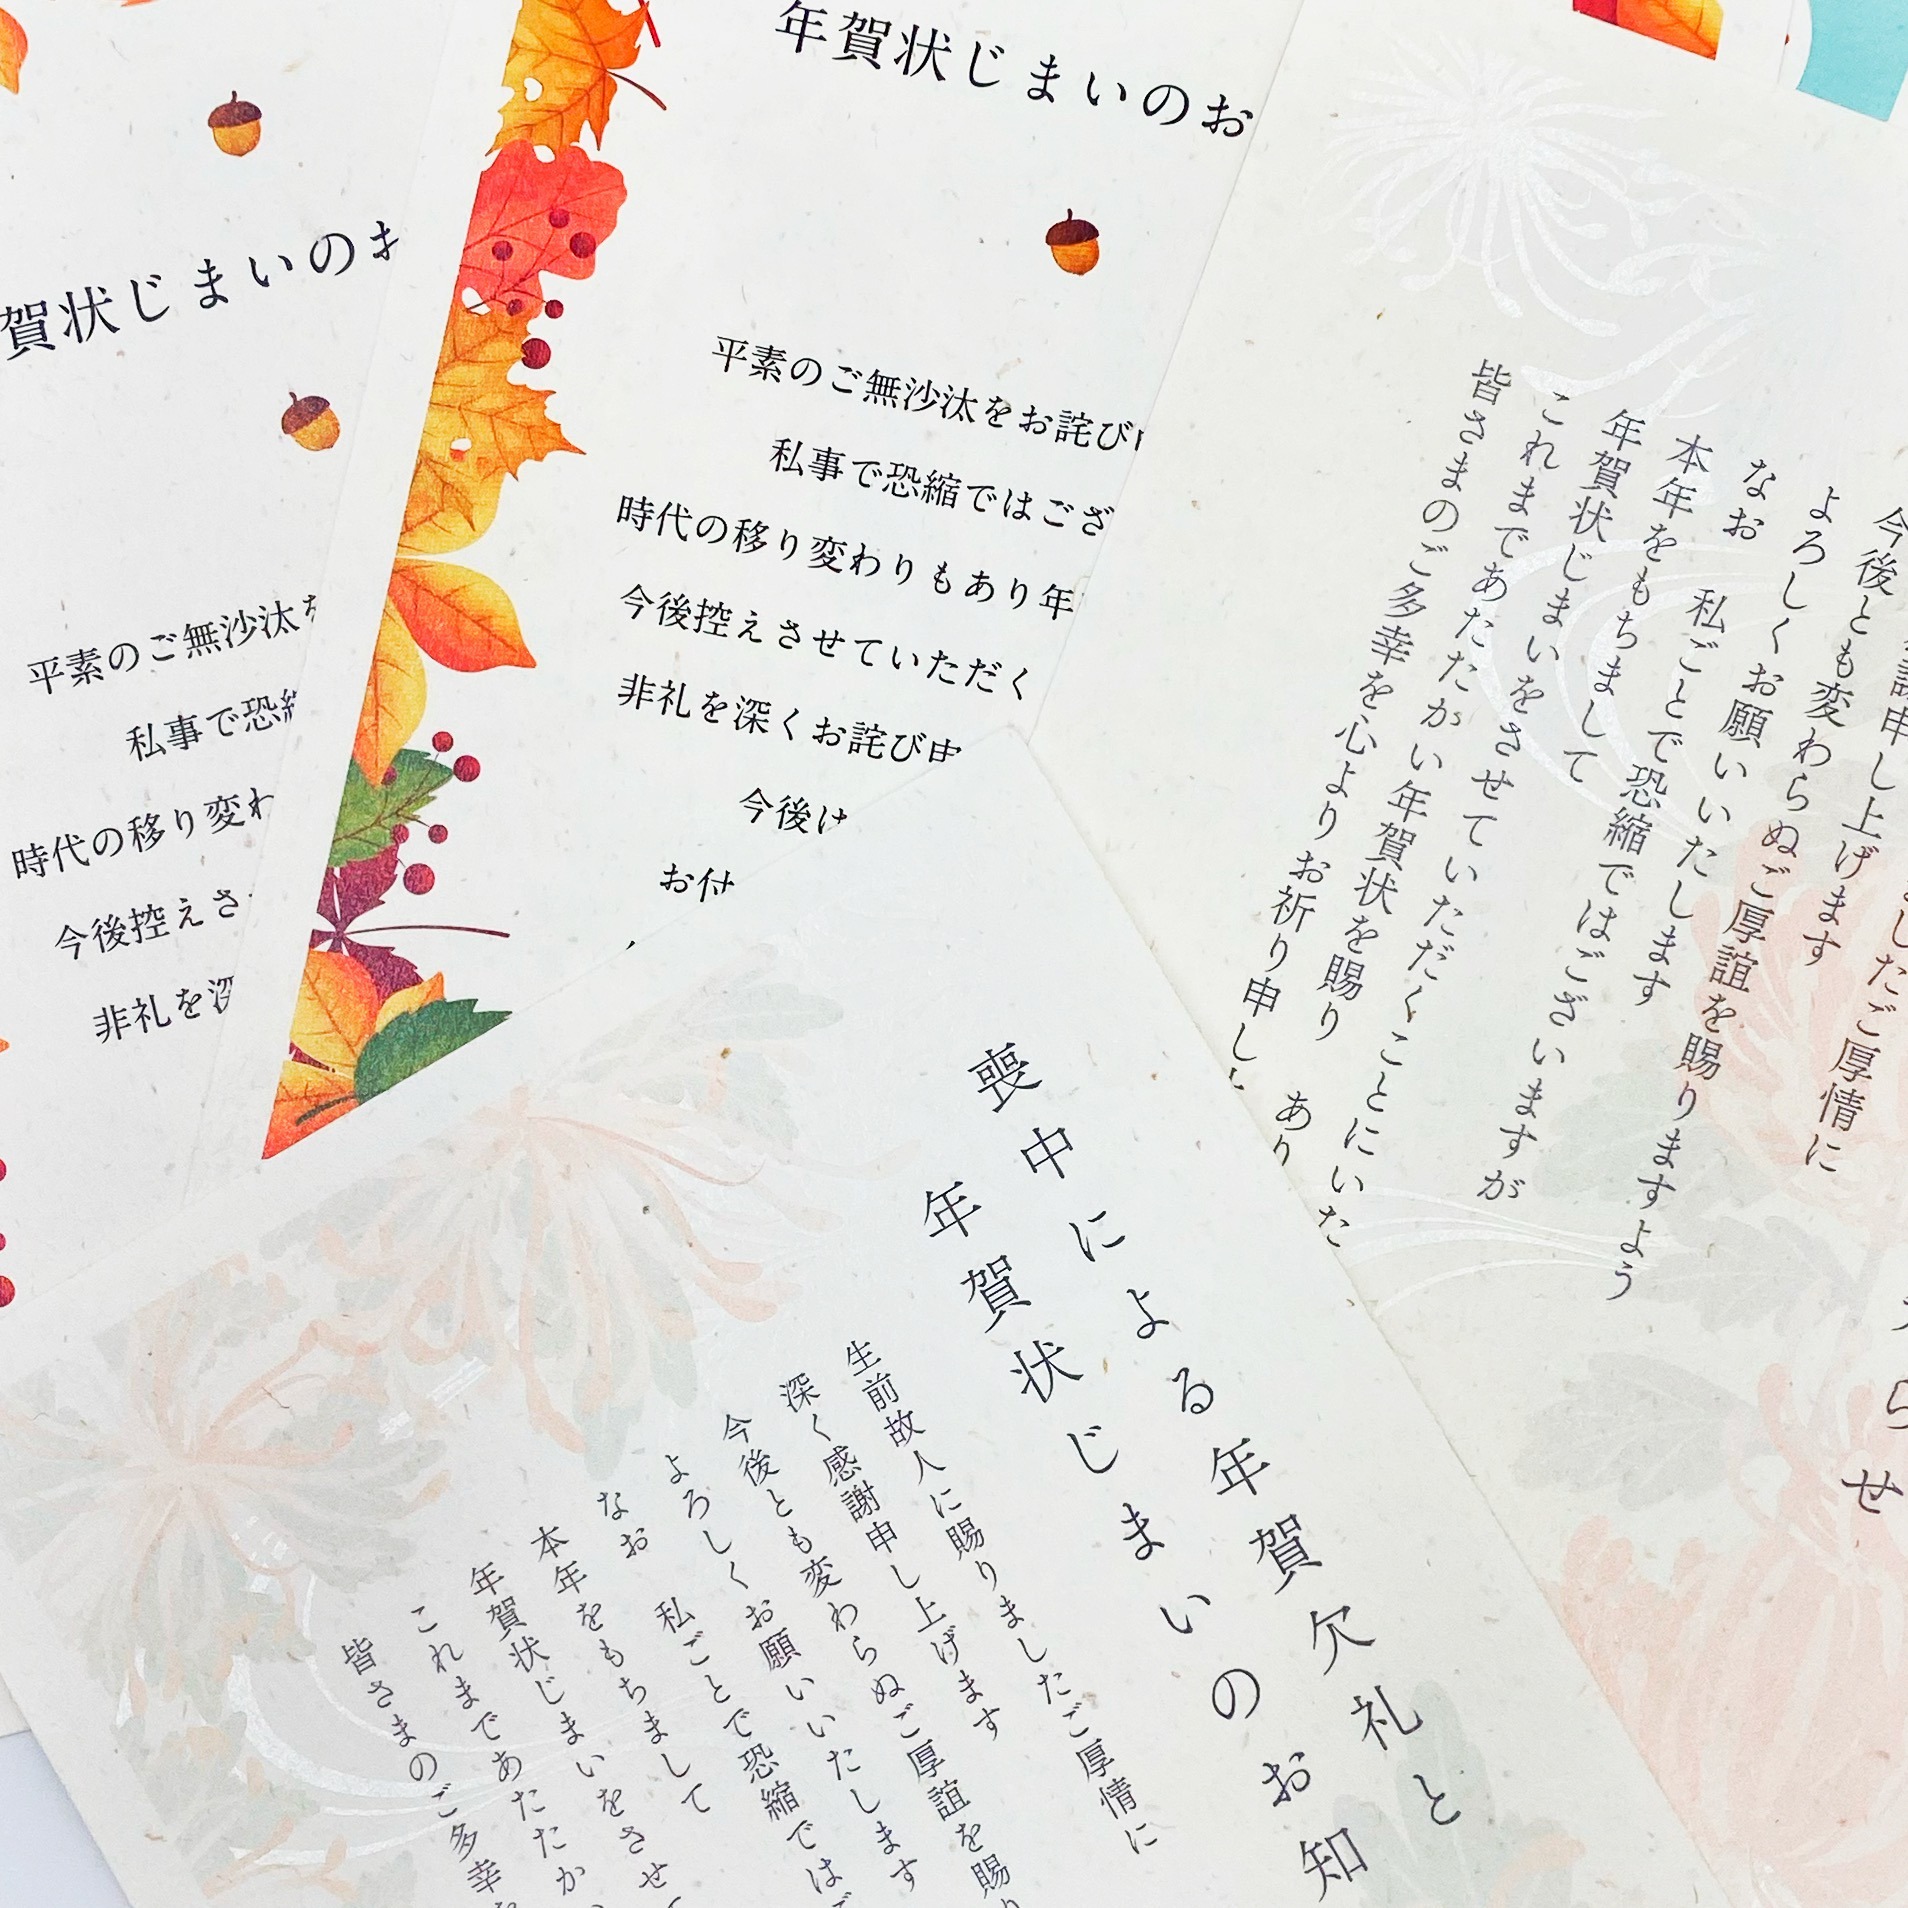 賀状じまいの
平素のご無沙汰
私事で恐
時代の移り変わ
今後控えさ
非礼を
年賀状じまいのお
平素のご無沙汰をお詫び
私事で恐縮ではござ
時代の移り変わりもあり年
今後控えさせていただく
非礼を深くお詫び申
今後は
お付
らせ
ましたご厚情に
謝申し上げます
今後とも変わらぬご厚誼を賜りますよう
よろしくお願いいたします
なお 私ごとで恐縮ではございますが
本年をもちまして
年賀状じまいをさせていただくことにいた
これまであたたかい年賀状を賜り あり
皆さまのご多幸を心よりお祈り申し
喪中による年賀欠礼と
年賀状じまいのお知
生前故人に賜りましたご厚情に
深く感謝申し上げます
今後とも変わらぬご厚誼を賜り
よろしくお願いいたします
なお 私ごとで恐縮では
本年をもちまして
年賀状じまいをさせ
これまであたたか
皆さまのご多幸